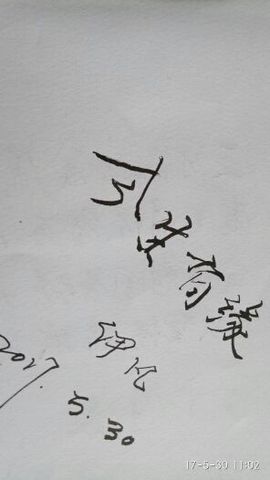 今生有缘
2017. 5. 30
17-5-30 11:02